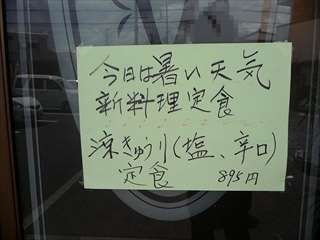 今日は暑い天気
新料理定食
涼きゅうり(塩、辛口)
定食 895円